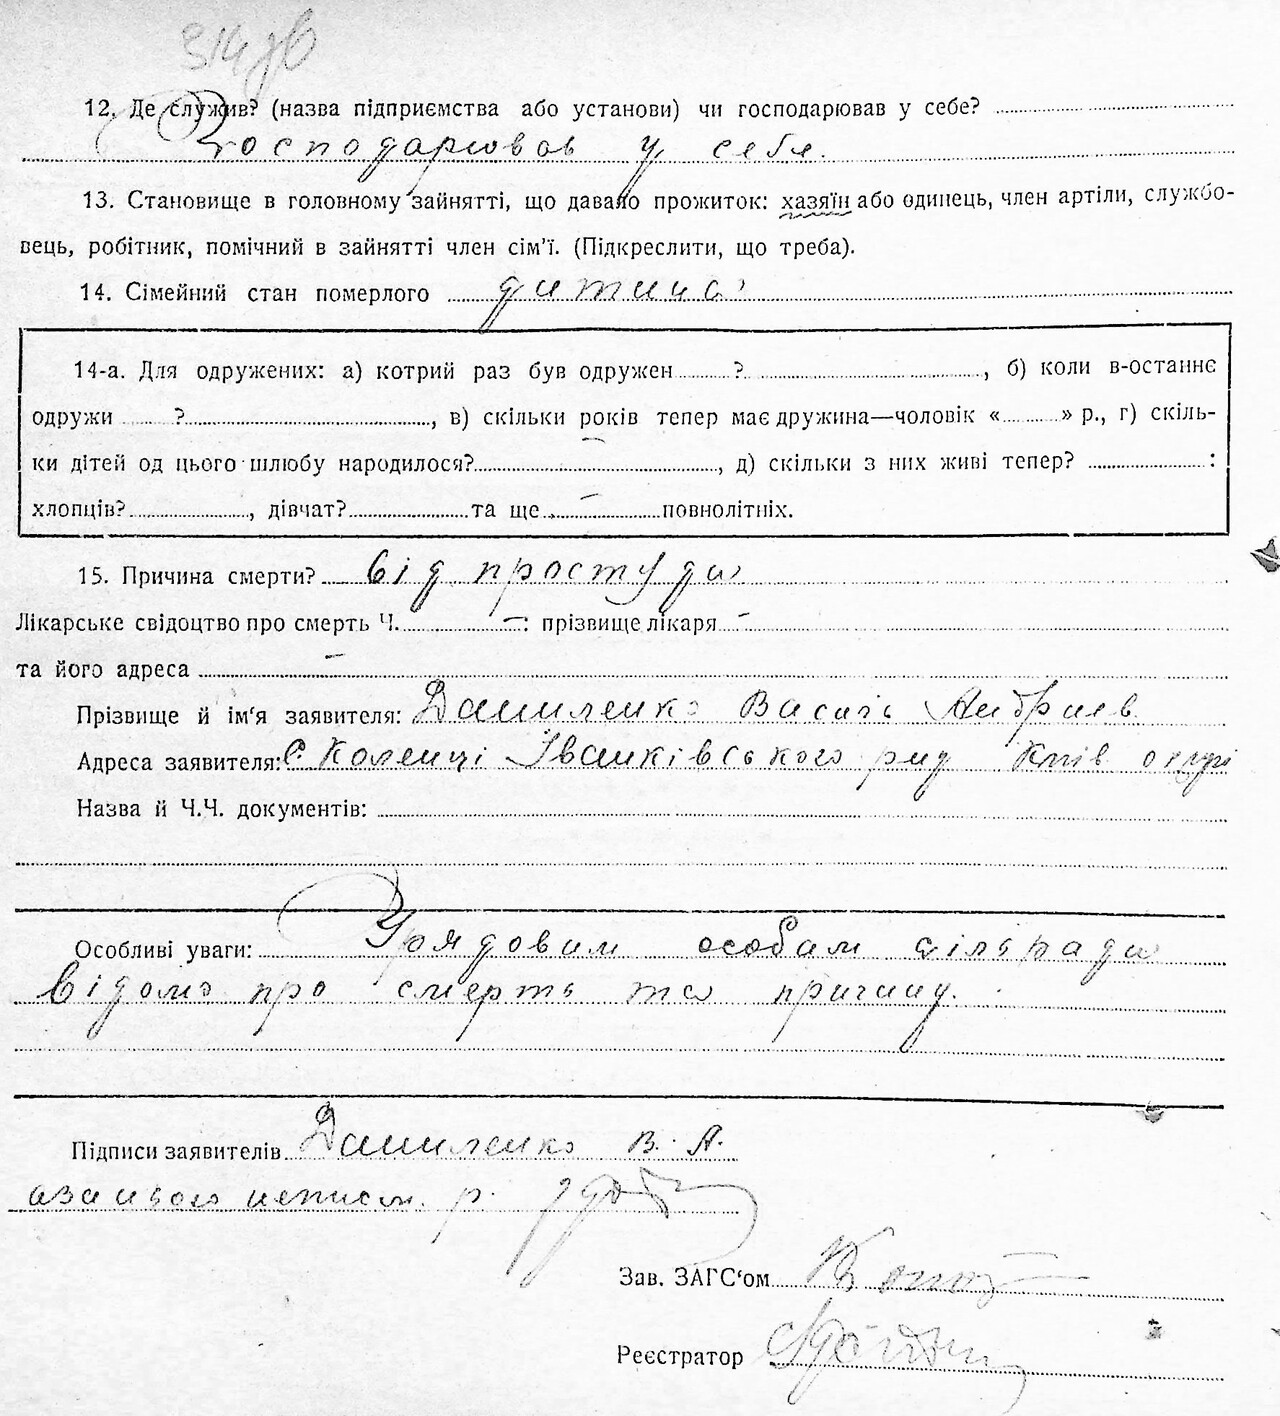 314
12. Де служив? (назва підприємства або установи) чи господарював у себе?
Господарював у себе.
13. Становище в головному зайнятті, що давало прожиток: хазяїн або одинець, член артіли, службо-
вець, робітник, помічний в зайнятті член сім'ї. (Підкреслити, що треба).
14. Сімейний стан померлого дитина
14-а. Для одружених: а) котрий раз був одружен ? , б) коли в-останнє
одружи ? , в) скільки років тепер має дружина—чоловік « » р., г) скіль-
ки дітей од цього шлюбу народилося? , д) скільки з них живі тепер? :
хлопців? , дівчат? та ще повнолітніх.
15. Причина смерти? від простуди
Лікарське свідоцтво про смерть Ч. —: прізвище лікаря —
та його адреса —
Прізвище й ім'я заявителя: Даниленко Василь Андриев.
Адреса заявителя: С Коленці Іванківського рид Київ округи
Назва й Ч.Ч. документів:
Особливі уваги: Урядовим особам сільради
відомо про смерть та причину.
Підписи заявителів Даниленко В. А.
а за його неписм. р.
Зав. ЗАГС'ом
Реєстратор